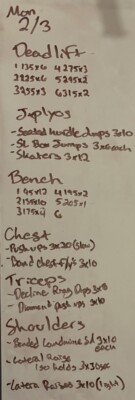 Mon
2/3
Deadlift
1 135x6 4 275x3
2 225x6 5 295x2
3 255x3 6 315x2
Jxplyos
- Seated hurdle jumps 3x10
- SL Box Jumps 3x6 each
- Skaters 3x12
Bench
1 95x12 4 195x2
2 135x10 5 205x1
3 175x4 6
Chest
- Push ups 3x20 (slow)
- Band chest flys 3x10
Triceps
- Decline Ring Dips 3x8
- Diamond push ups 3x10
Shoulders
- Banded Landmine SA 3x10
each
- Lateral Raise
iso holds 3x30sec
- Lateral Raises 3x10 (light)